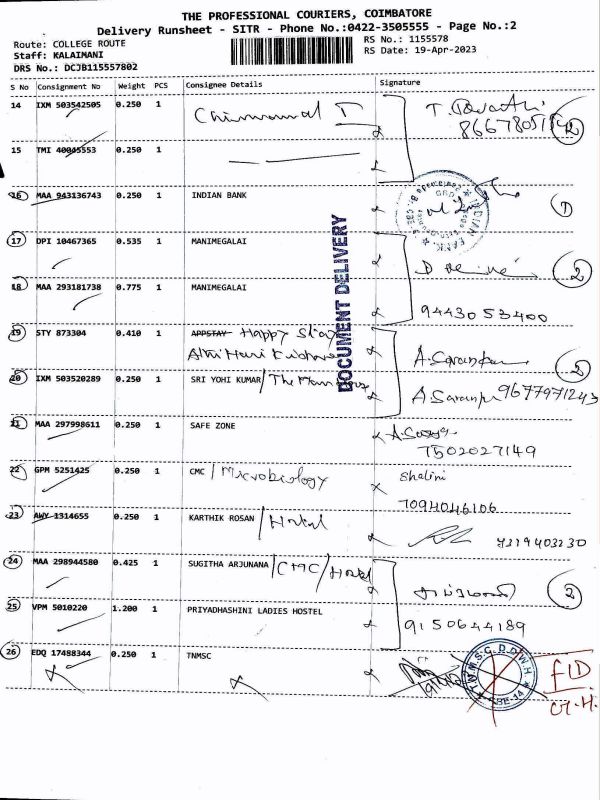 THE PROFESSIONAL COURIERS, COIMBATORE
Delivery Runsheet - SITR - Phone No.:0422-3505555 - Page No.:2
Route: COLLEGE ROUTE RS No.: 1155578
Staff: KALAIMANI RS Date: 19-Apr-2023
DRS No.: DCJB115557802
S No Consignment No Weight PCS Consignee Details Signature
14 IXM 503542505 0.250 1
15 TMI 40045553 0.250 1
16 MAA 943136743 0.250 1 INDIAN BANK
INDIAN BANK
17 DPI 10467365 0.535 1 MANIMEGALAI 2
DOCUMENT DELIVERY
18 MAA 293181738 0.775 1 MANIMEGALAI
94430 53400
19 STY 873304 0.410 1 APPSTAY Happy Stay
A. Saranya 2
20 IXM 503520289 0.250 1 SRI YOHI KUMAR
9677971243
21 MAA 297998611 0.250 1 SAFE ZONE
7502027149
22 GPM 5251425 0.250 1 CMC / Microbiology Shalini
7094046106
23 AWY 1314655 0.250 1 KARTHIK ROSAN / Hostel
24 MAA 298944580 0.425 1 SUGITHA ARJUNANA / CMC / Hostel 2
25 VPM 5010220 1.200 1 PRIYADHASHINI LADIES HOSTEL
9150644189
26 EDQ 17488344 0.250 1 TNMSC
T.N.M.S.C. D.D.W.H.
CBE-14